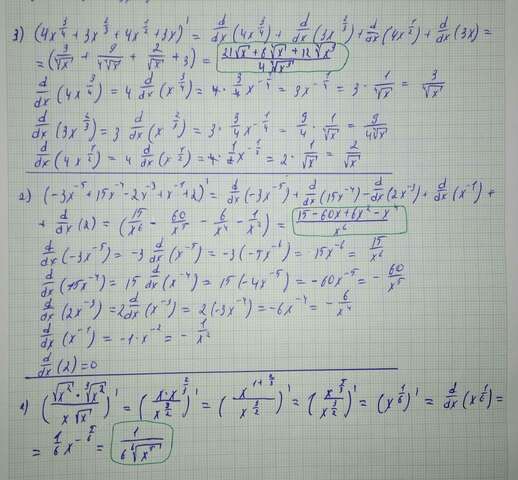 3) (4x^{3/4} + 3x^{2/3} + 4x^{1/2} + 3x)' = d/dx (4x^{3/4}) + d/dx (3x^{2/3}) + d/dx (4x^{1/2}) + d/dx (3x) =
= (3/∜x + 9/(4∜x) + 2/√x + 3) =
d/dx (4x^{3/4}) = 4 d/dx (x^{3/4}) = 4 · 3/4 x^{-1/4} = 3x^{-1/4} = 3 · 1/∜x = 3/∜x
d/dx (3x^{2/3}) = 3 d/dx (x^{2/3}) = 3 · 3/4 x^{-1/4} = 9/4 · 1/∜x = 9/(4∜x)
d/dx (4x^{1/2}) = 4 d/dx (x^{1/2}) = 4 · 1/2 x^{-1/2} = 2 · 1/√x = 2/√x
2) (-3x^{-5} + 15x^{-4} - 2x^{-3} + x^{-1} + 2)' = d/dx (-3x^{-5}) + d/dx (15x^{-4}) - d/dx (2x^{-3}) + d/dx (x^{-1}) +
+ d/dx (2) = (15/x^6 - 60/x^5 - 6/x^4 - 1/x^2) = (15 - 60x + 6x^2 - x^4)/x^6
d/dx (-3x^{-5}) = -3 d/dx (x^{-5}) = -3(-5x^{-6}) = 15x^{-6} = 15/x^6
d/dx (15x^{-4}) = 15 d/dx (x^{-4}) = 15(-4x^{-5}) = -60x^{-5} = - 60/x^5
d/dx (2x^{-3}) = 2 d/dx (x^{-3}) = 2(-3x^{-4}) = -6x^{-4} = - 6/x^4
d/dx (x^{-1}) = -1 · x^{-2} = - 1/x^2
d/dx (2) = 0
1) ((√x^2 · ∛x^2)/(x√x))' = ((x · x^{2/3})/x^{3/2})' = (x^{1+2/3}/x^{3/2})' = (x^{5/3}/x^{3/2})' = (x^{1/6})' = d/dx (x^{1/6}) =
= 1/6 x^{-5/6} = 1/(6 ⁶√x^5)